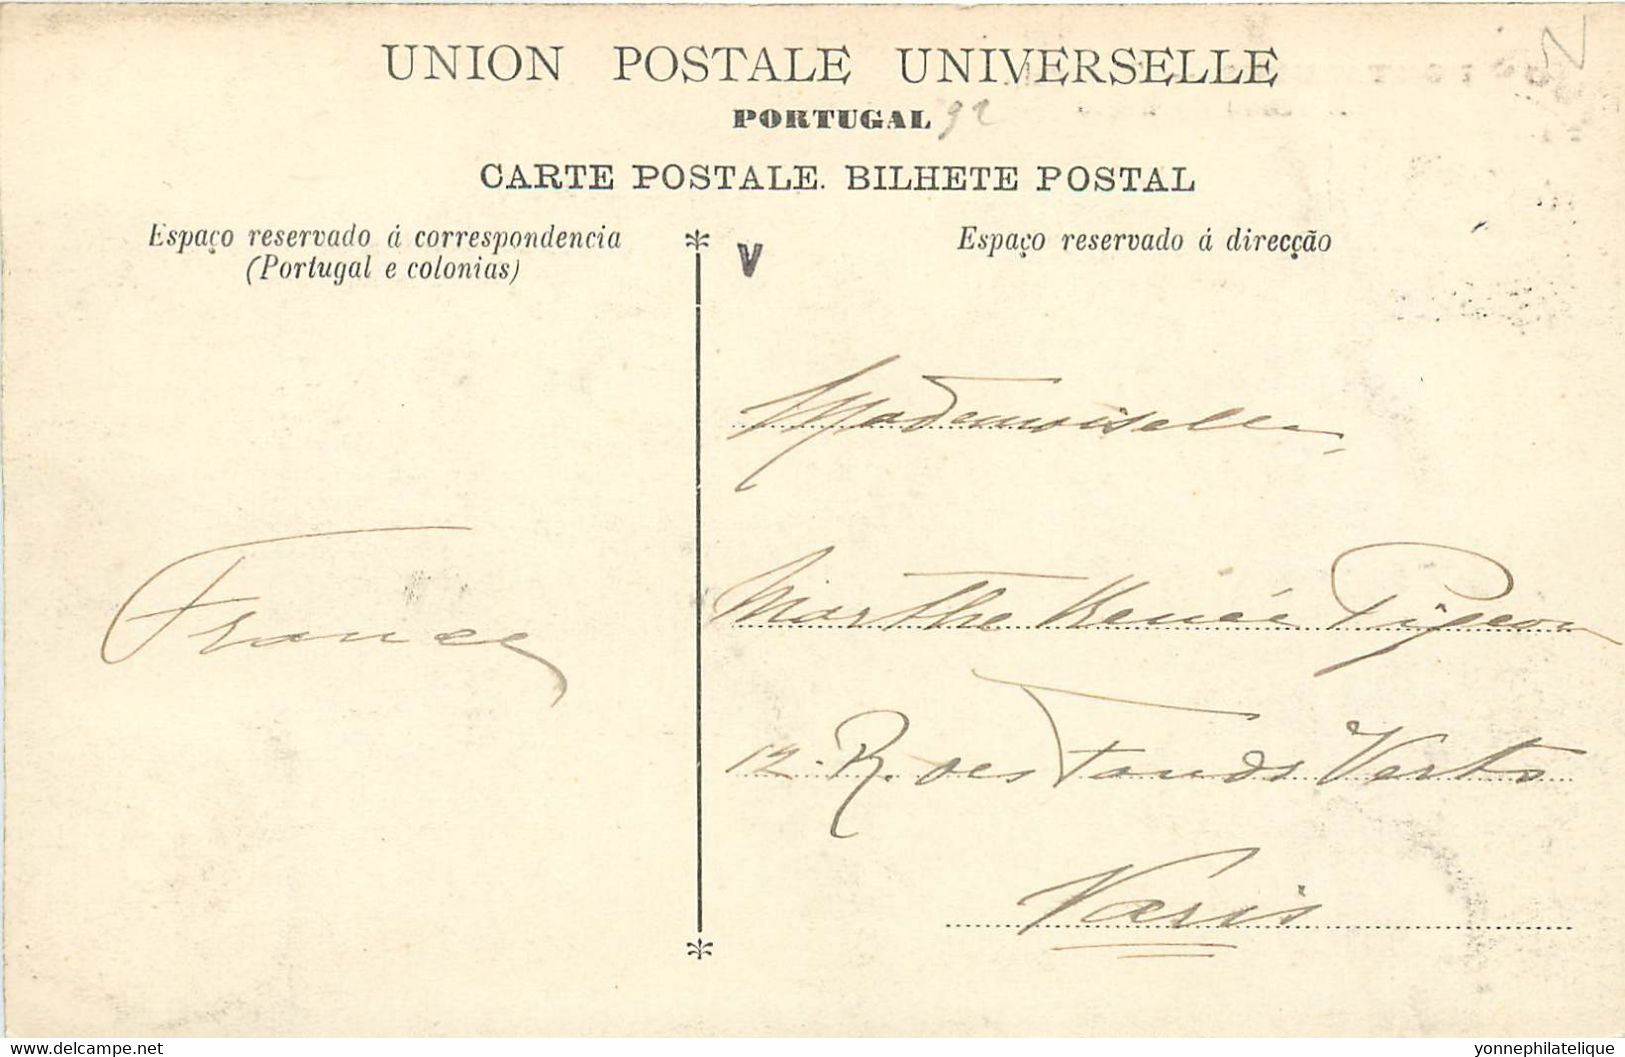 UNION POSTALE UNIVERSELLE
PORTUGAL 92
CARTE POSTALE. BILHETE POSTAL
Espaço reservado á correspondencia
(Portugal e colonias)
V
Espaço reservado á direcção
Mademoiselle
Marthe Renée Pigeon
12. R. des Fonds Verts
Paris
France
www.delcampe.net
yonnephilatelique